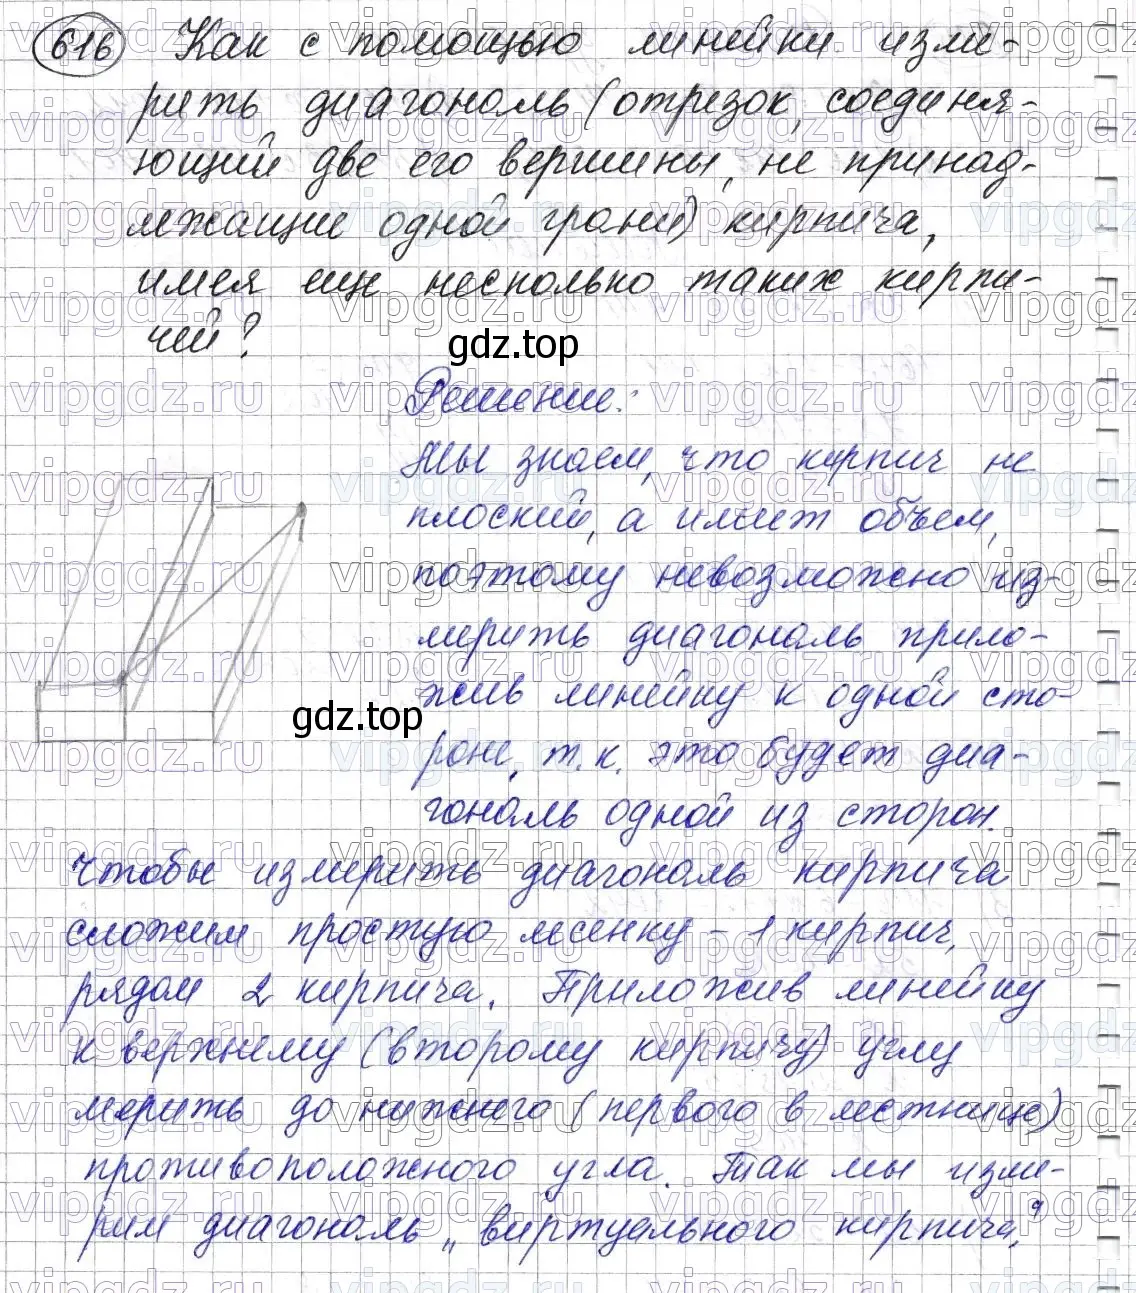 616 Как с помощью линейки изме-
рить диагональ (отрезок, соединя-
ющий две его вершины, не принад-
лежащие одной грани) кирпича,
имея еще несколько таких кирпи-
чей?
gdz.top
Решение:
Мы знаем, что кирпич не
плоский, а имеет объем,
поэтому невозможно из-
мерить диагональ прило-
жив линейку к одной сто-
gdz.top
роне, т.к. это будет диа-
гональ одной из сторон.
Чтобы измерить диагональ кирпича
сложим простую лесенку - 1 кирпич,
рядом 2 кирпича. Приложив линейку
к верхнему (второму кирпичу) углу
мерить до нижнего (первого в лестнице)
противоположного угла. Так мы изме-
рим диагональ „виртуального кирпича."
vipgdz.ru